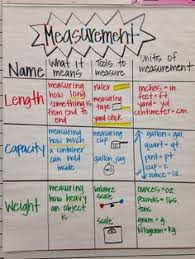 Measurement
Name
What it means
Tools to measure
Units of measurement
Length
measuring how long something is from end to end
ruler
measuring tape
yard stick
inches = in
feet = ft
yard = yd
centimeter = cm
Capacity
measuring how much a container can hold inside
measuring cup
gallon jug
gallon = gal
quart = qt
pint = pt
cup = c
ounce = oz
Weight
measuring how heavy an object is
balance scale
scale
ounces = oz
Pounds = lbs
tons
gram = g
kilogram = kg